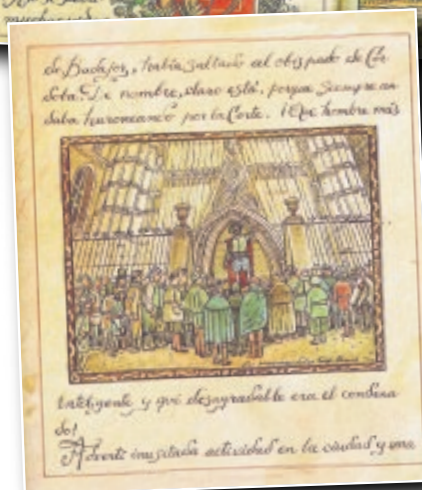 de Badajoz, había saltado al obispado de Cór
doba. De nombre, claro está, porque siempre an
daba huroneando por la Corte. ¡Qué hombre más
inteligente y qué desagradable era el condena
do!
Advertí inusitada actividad en la ciudad y una